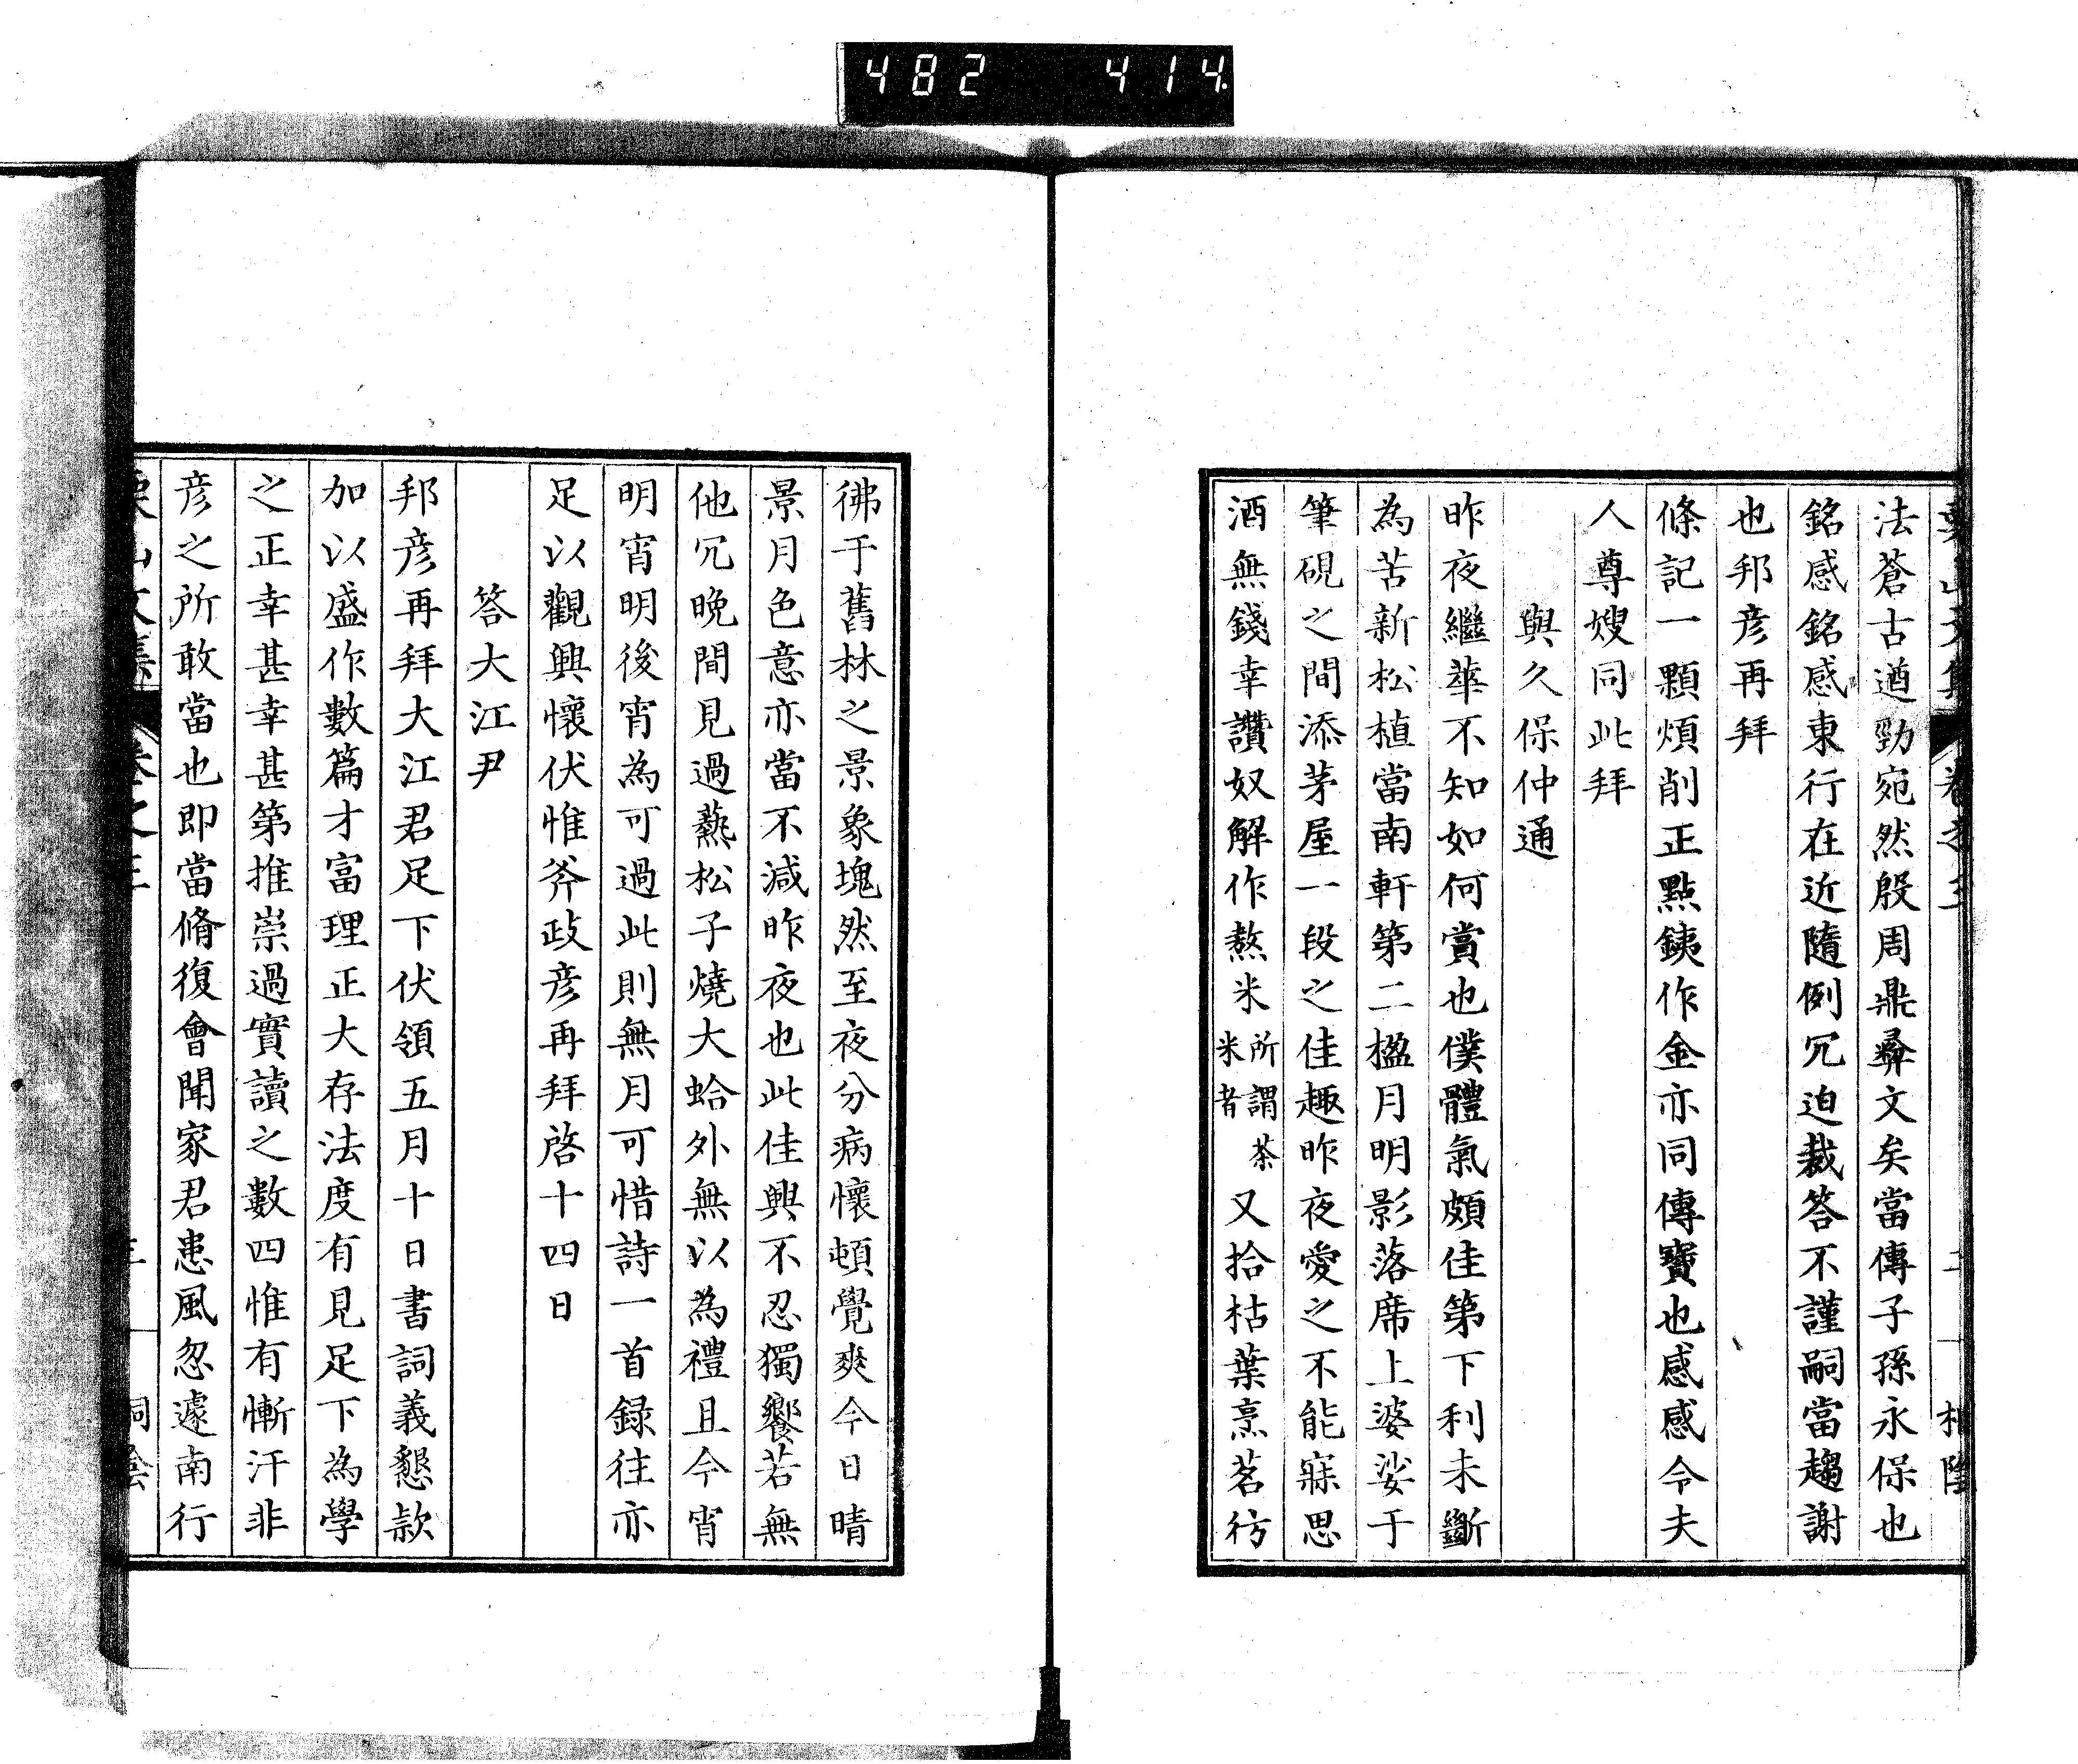 482 414
法蒼古遒勁宛然殷周鼎彝文矣當傳子孫永保也
銘感銘感東行在近隨例冗迫裁答不謹嗣當趨謝
也邦彦再拜
條記一顆煩削正點銕作金亦同傳寶也感感令夫
人尊嫂同此拜
與久保仲通
昨夜繼華不知如何賞也僕體氣頗佳第下利未斷
為苦新松植當南軒第二楹月明影落席上婆娑于
筆硯之間添茅屋一段之佳趣昨夜愛之不能寐思
酒無錢幸讚奴解作熬米所謂茶米者又拾枯葉烹茗彷
彿于舊林之景象塊然至夜分病懷頓覺爽今日晴
景月色意亦當不減昨夜也此佳興不忍獨饗若無
他冗晚間見過爇松子燒大蛤外無以為禮且今宵
明宵明後宵為可過此則無月可惜詩一首録往亦
足以觀興懷伏惟斧政彦再拜啓十四日
答大江尹
邦彦再拜大江君足下伏領五月十日書詞義懇款
加以盛作數篇才富理正大存法度有見足下為學
之正幸甚幸甚第推崇過實讀之數四惟有慚汗非
彦之所敢當也即當脩復會聞家君患風忽遽南行